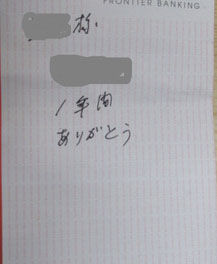 FRONTIER BANKING
様
1年間
ありがとう